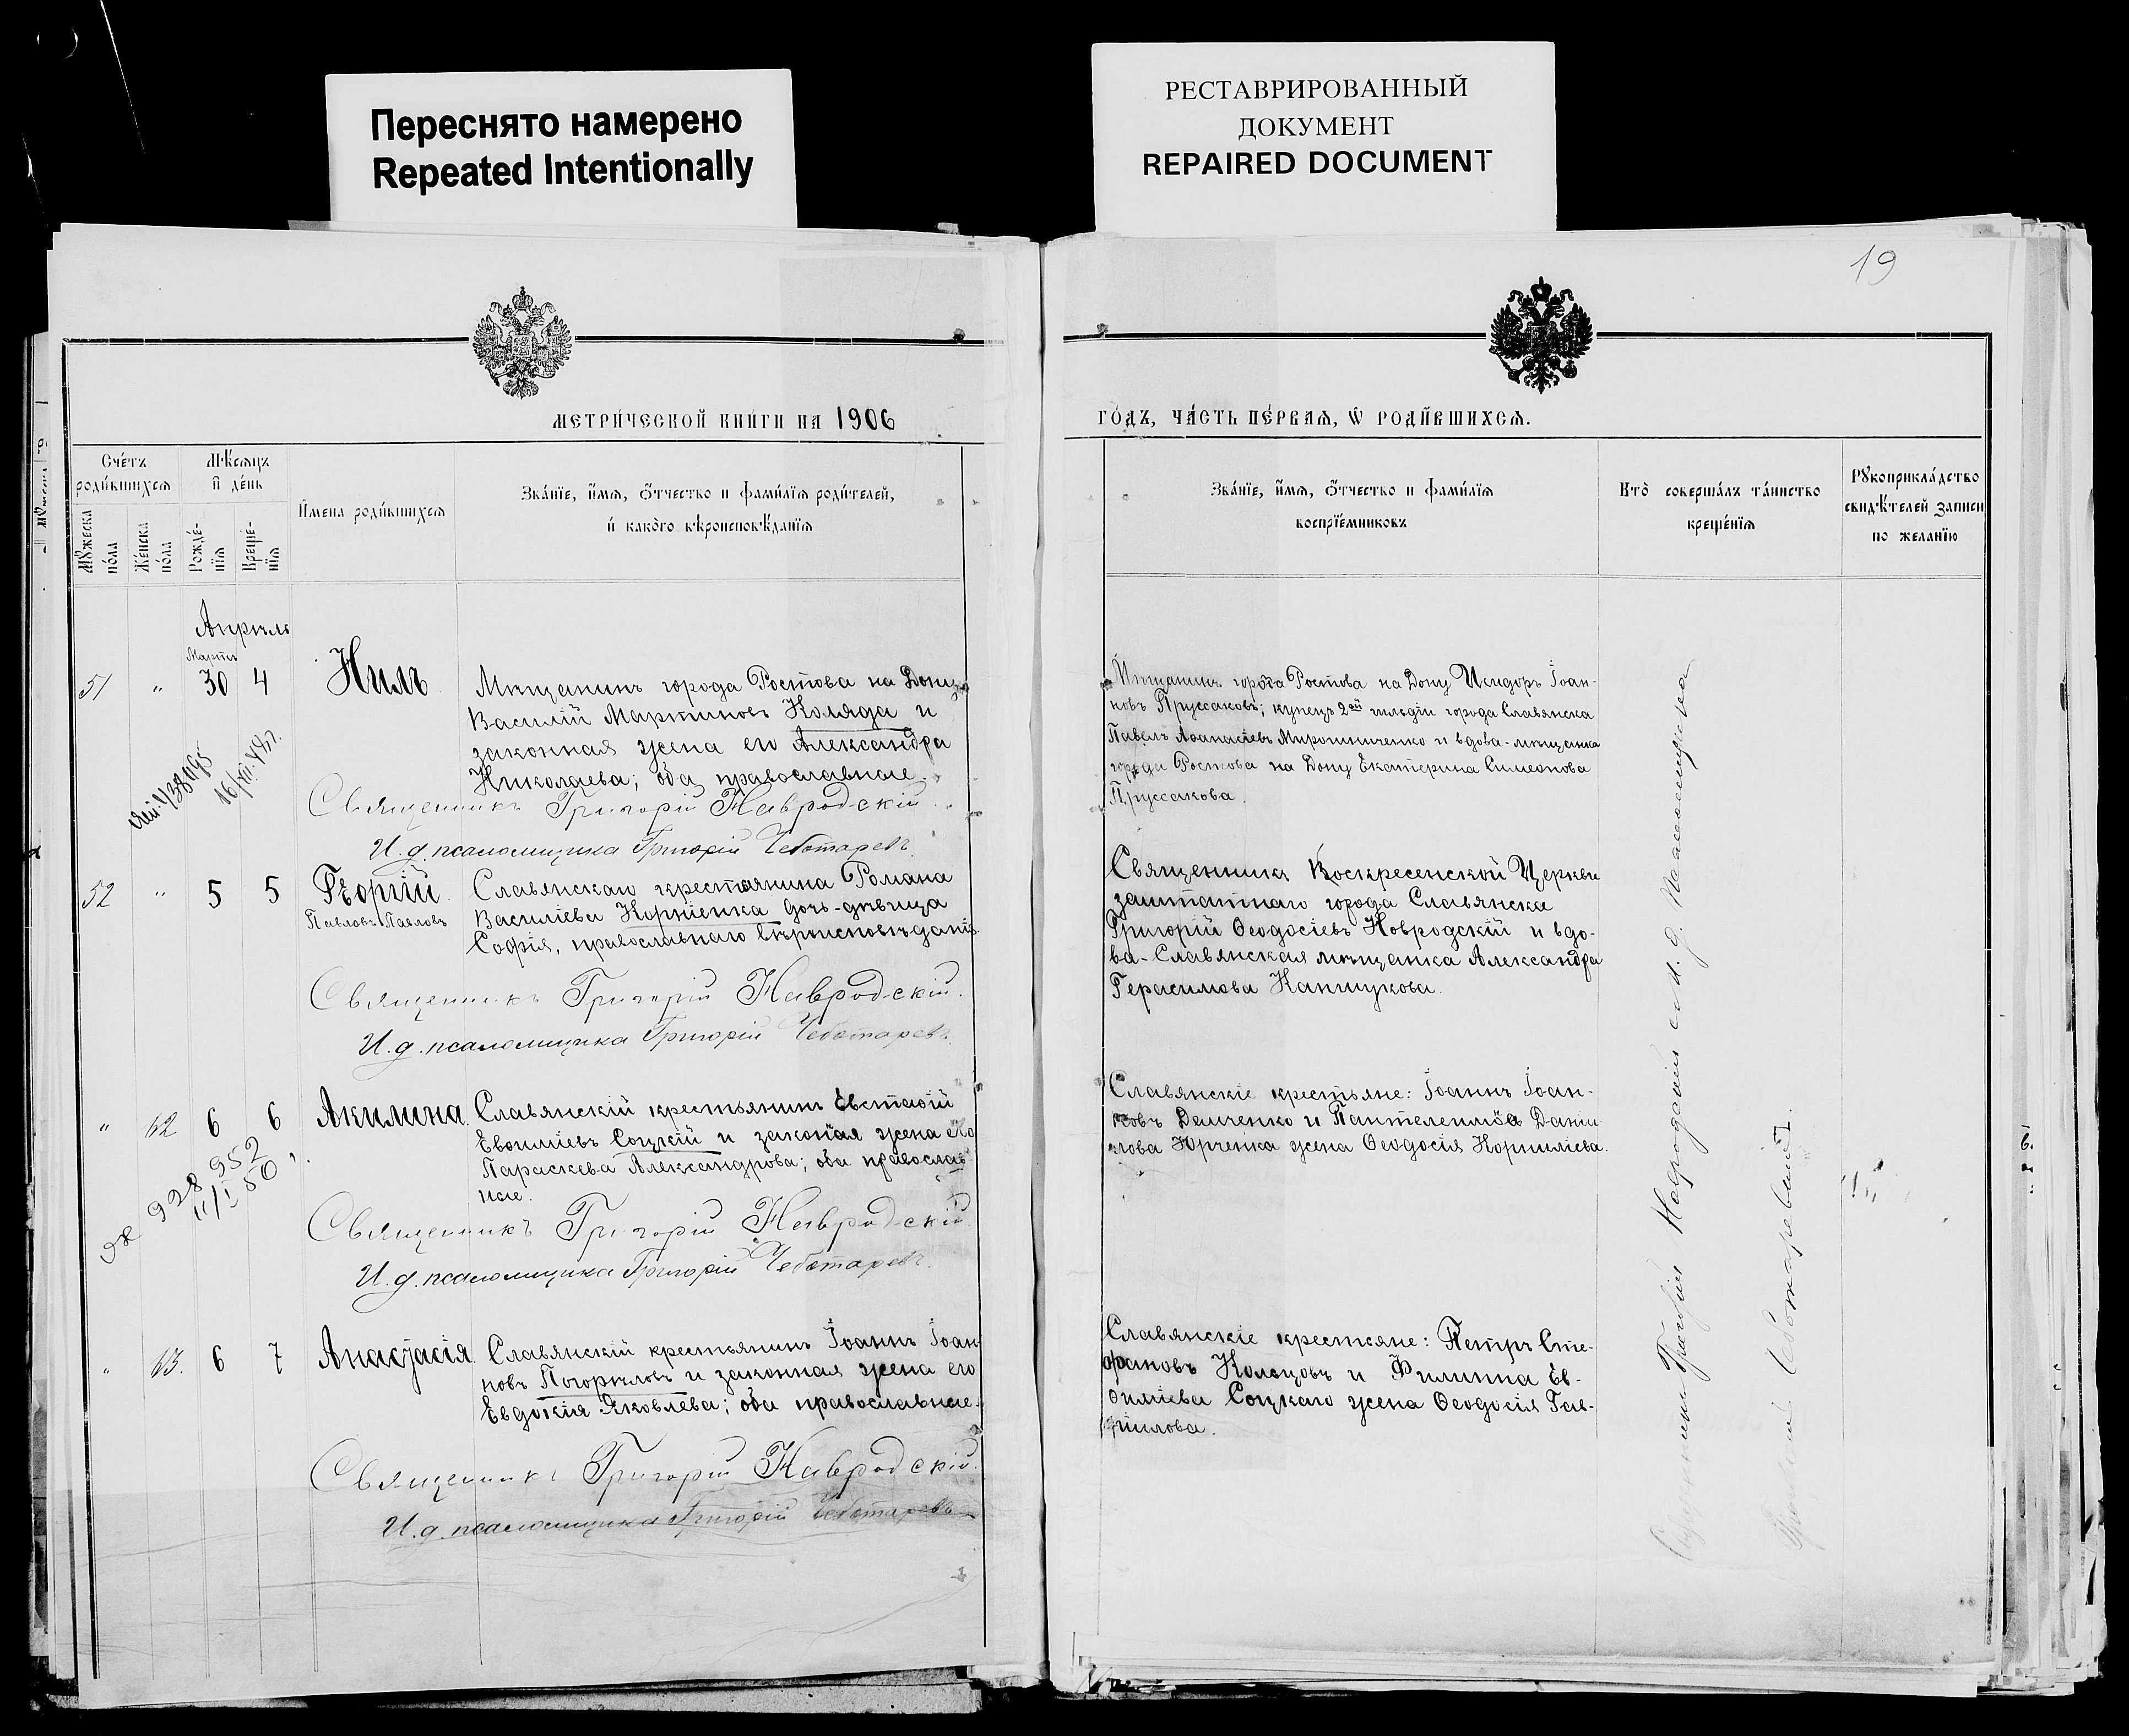 Переснято намерено
Repeated Intentionally
РЕСТАВРИРОВАННЫЙ
ДОКУМЕНТ
REPAIRED DOCUMENT
19
МЕТРИ́ЧЕСКОЙ КНИ́ГИ НА 1906
ГО́ДЪ, ЧА́СТЬ ПЕ́РВАѦ, Ѡ РОДИ́ВШИХСѦ.
Сче́тъ
роди́вшихсѧ
Мꙋ́жеска
по́ла
Же́нска
по́ла
Мѣ́сѧцъ
и де́нь
Рожде́-
нїѧ
Креще́-
нїѧ
И́мена роди́вшихсѧ
Зва́нїе, и́мѧ, о́тчество и фами́лїѧ роди́телей,
и како́го вѣроисповѣ́данїѧ
Зва́нїе, и́мѧ, о́тчество и фами́лїѧ
воспрїе́мниковъ
Кто̀ соверша́лъ та́инство
креще́нїѧ
Рꙋкоприкла́дство
свидѣ́телей записи
по жела́нїю
Апрѣль
Марта
51 " 30 4
Нилъ
Мѣщанинъ города Ростова на Дону
Василій Мартиновъ Коляда и
законная жена его Александра
Николаева; оба православные.
Священникъ Григорій Навродскій.
И. д. псаломщика Григорій Чеботаревъ.
Мѣщанинъ города Ростова на Дону Исидоръ Іоан-
новъ Пруссаковъ; купецъ 2ой гильдіи города Славянска
Павелъ Аѳанасіевъ Мирошниченко и вдова-мѣщанка
города Ростова на Дону Екатерина Симеонова
Пруссакова.
52 " 5 5
Георгій.
Павловъ Павловъ
Славянскаго крестьянина Романа
Василіева Корніенка дочь-дѣвица
Софія, православнаго вѣроисповѣданія.
Священникъ Григорій Навродскій.
И. д. псаломщика Григорій Чеботаревъ.
Священникъ Воскресенской Церкви
заштатнаго города Славянска
Григорій Ѳеодосіевъ Новродскій и вдо-
ва-Славянская мѣщанка Александра
Герасимова Капшукова.
" 62 6 6
Акилина.
Славянскій крестьянинъ Евстаѳій
Евѳиміевъ Соцкій и законная жена его
Параскева Александрова; оба православ
ные.
928 952
11/I 50
Священникъ Григорій Навродскій.
И. д. псаломщика Григорій Чеботаревъ.
Славянскіе крестьяне: Іоаннъ Іоан-
новъ Демченко и Пантелеимона Даніи-
лова Юрченка жена Ѳеодосія Корнилиева.
" 63. 6 7
Анастасія.
Славянскій крестьянинъ Іоаннъ Іоан-
новъ Погорѣловъ и законная жена его
Евдокія Яковлева; оба православные.
Священникъ Григорій Навродскій.
И. д. псаломщика Григорій Чеботаревъ
Славянскіе крестьяне: Петръ Сте-
фановъ Кольцовъ и Филиппа Ев-
ѳиміева Соцкаго жена Ѳеодосія Гав-
риилова.
Священникъ Григорій Навродскій съ и. д. Псаломщика
Григоріемъ Чеботаревымъ.